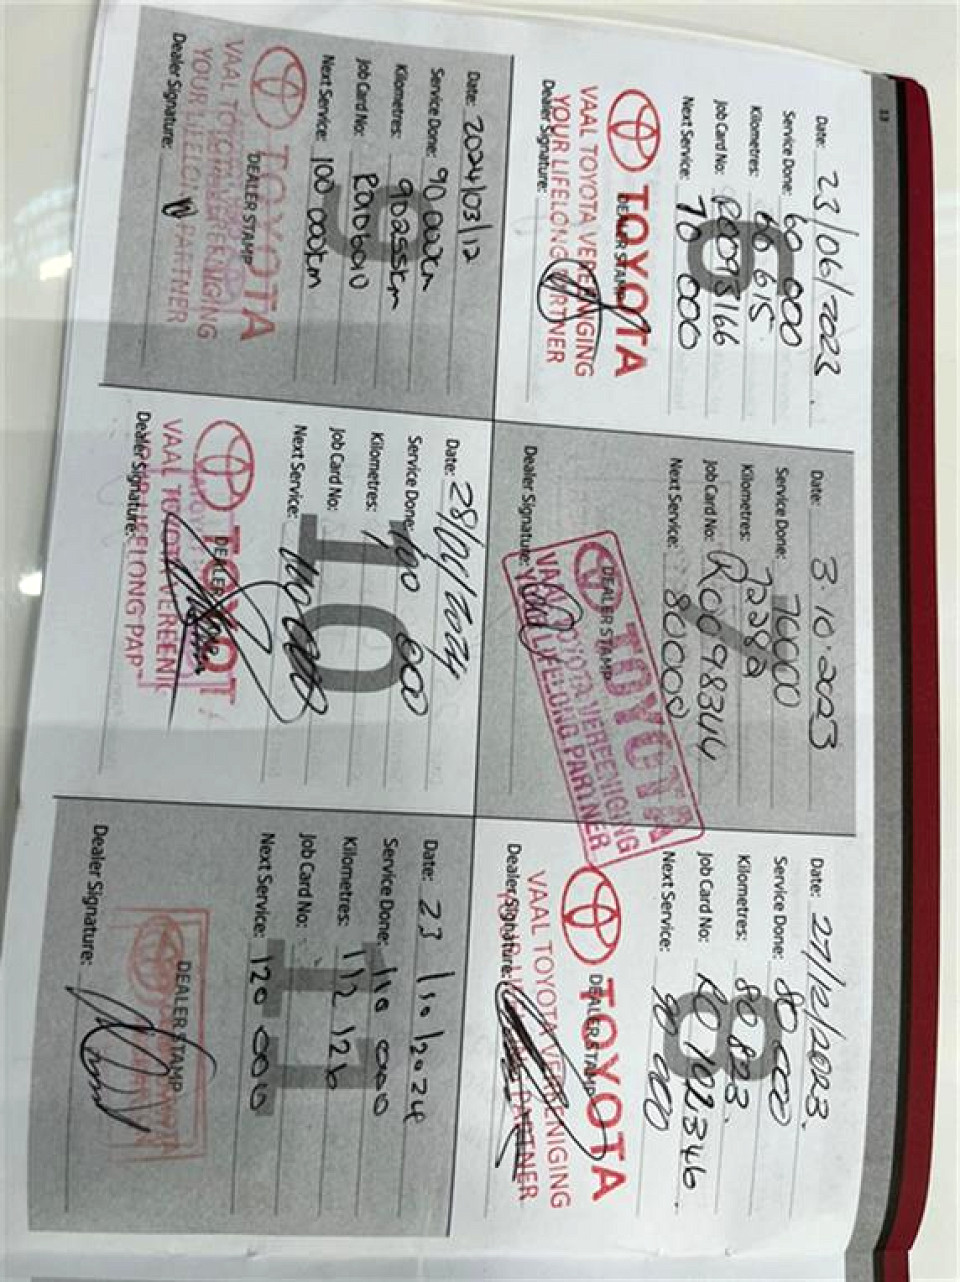 13
Date: 23/06/2023
Service Done: 60 000
Kilometres: 60 615
Job Card No: R0093166
Next Service: 70 000
6
TOYOTA
DEALER STAMP
VAAL TOYOTA VEREENIGING
YOUR LIFELONG PARTNER
Dealer Signature:
Date: 3.10.2023
Service Done: 70000
Kilometres: 72289
Job Card No: R0098344
Next Service: 80000
7
TOYOTA
DEALER STAMP
VAAL TOYOTA VEREENIGING
YOUR LIFELONG PARTNER
Dealer Signature:
Date: 27/12/2023
Service Done: 80 000
Kilometres: 80 803
Job Card No: R0102346
Next Service: 90 000
8
TOYOTA
DEALER STAMP
VAAL TOYOTA VEREENIGING
YOUR LIFELONG PARTNER
Dealer Signature:
Date: 2024/03/12
Service Done: 90 000km
Kilometres: 90255km
Job Card No: R0106010
Next Service: 100 000km
9
TOYOTA
DEALER STAMP
VAAL TOYOTA VEREENIGING
YOUR LIFELONG PARTNER
Dealer Signature:
Date: 28/06/2024
Service Done: 100 000
Kilometres:
Job Card No:
Next Service: 110 000
10
TOYOT
DEALER
VAAL TOYOTA VEREENIG
LIFELONG PAR
Dealer Signature:
Date: 23/10/2024
Service Done: 110 000
Kilometres: 112 126
Job Card No:
Next Service: 120 000
11
DEALER STAMP
Dealer Signature: